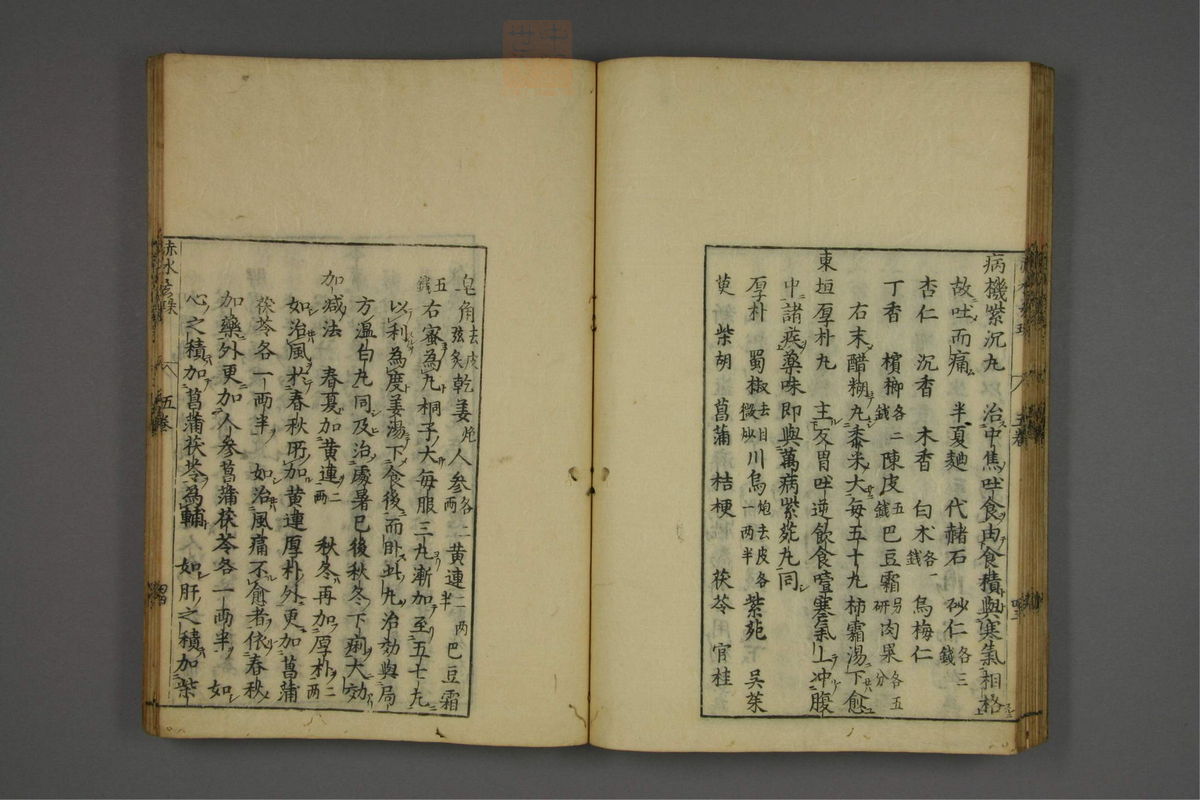 病機紫沉丸 治中焦吐食由食積與寒氣相格
故吐而痛 半夏麯 代赭石 砂仁各三錢
杏仁 沉香 木香 白朮各一錢 烏梅仁
丁香 檳榔各二錢 陳皮五錢 巴豆霜另研 肉果各五分
右末醋糊丸黍米大每五十丸柿霜湯下愈
東垣厚朴丸 主反胃吐逆飲食噎塞氣上冲腹
中諸疾藥味即與萬病紫菀丸同
厚朴 蜀椒去目微炒 川烏炮去皮各一兩半 紫菀 吳茱
萸 柴胡 菖蒲 桔梗 茯苓 官桂
皂角去皮弦炙 乾姜炮 人參各二兩 黄連二兩半 巴豆霜
五錢 右蜜為丸桐子大每服三丸漸加至五七丸
以利為度姜湯下食後而卧此丸治効與局
方溫白丸同及治處暑已後秋冬下痢大効
加減法 春夏加黄連二兩 秋冬再加厚朴二兩
如治風於春秋所加黄連厚朴外更加菖蒲
茯苓各一兩半 如治風痛不愈者依春秋
加藥外更加人參菖蒲茯苓各一兩半 如
心之積加菖蒲茯苓為輔 如肝之積加柴
赤水玄珠 五卷
五卷